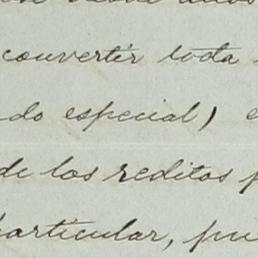 convertir toda
do especial)
de los reditos
particular, pu